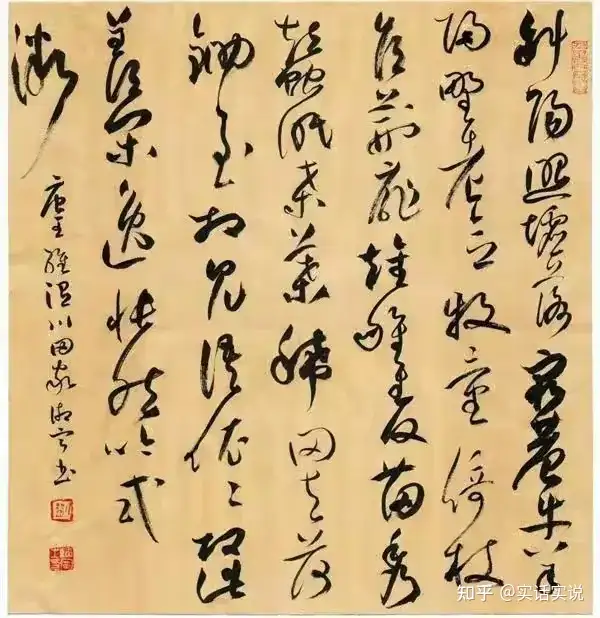 斜陽照墟落窮巷牛羊
歸野老念牧童倚杖
候荊扉雉雊麥苗秀
蠶眠桑葉稀田夫荷
鋤至相見語依依即此
羨閑逸悵然吟式
微
唐王維渭川田家 書
知乎 @实话实说